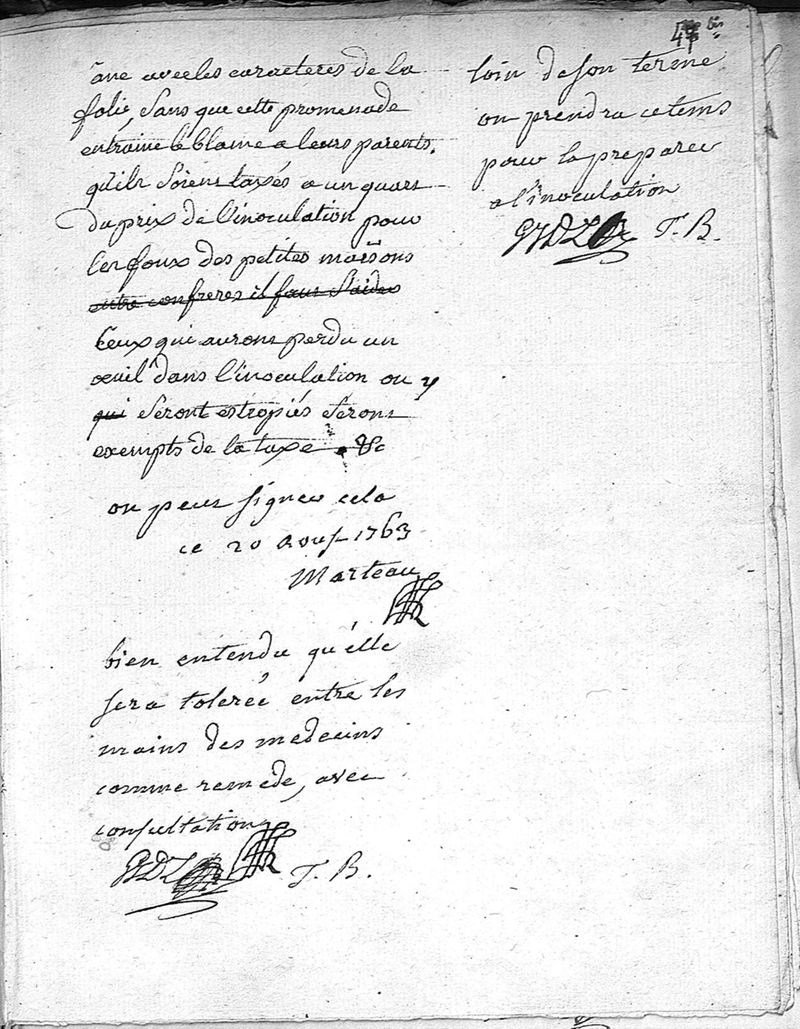 47 bis
âne avec les caracteres de la
folie, sans que cette promenade
entraine le blame a leurs parents.
qu'ils soient taxés a un quart
du prix de l'inoculation pour
les foux des petites maisons
entre confreres il faut s'aider
Ceux qui auront perdu un
œuil dans l'inoculation ou y
qui seront estropiés seront
exempts de la taxe . &c
on peut signer cela
ce 20 Aoust 1763
Marteau
bien entendu qu'elle
sera tolerée entre les
mains des medecins
comme remede, avec
consultation
T. B.
loin de son terme
on prendra ce tems
pour la preparer
a l'inoculation
T. B.